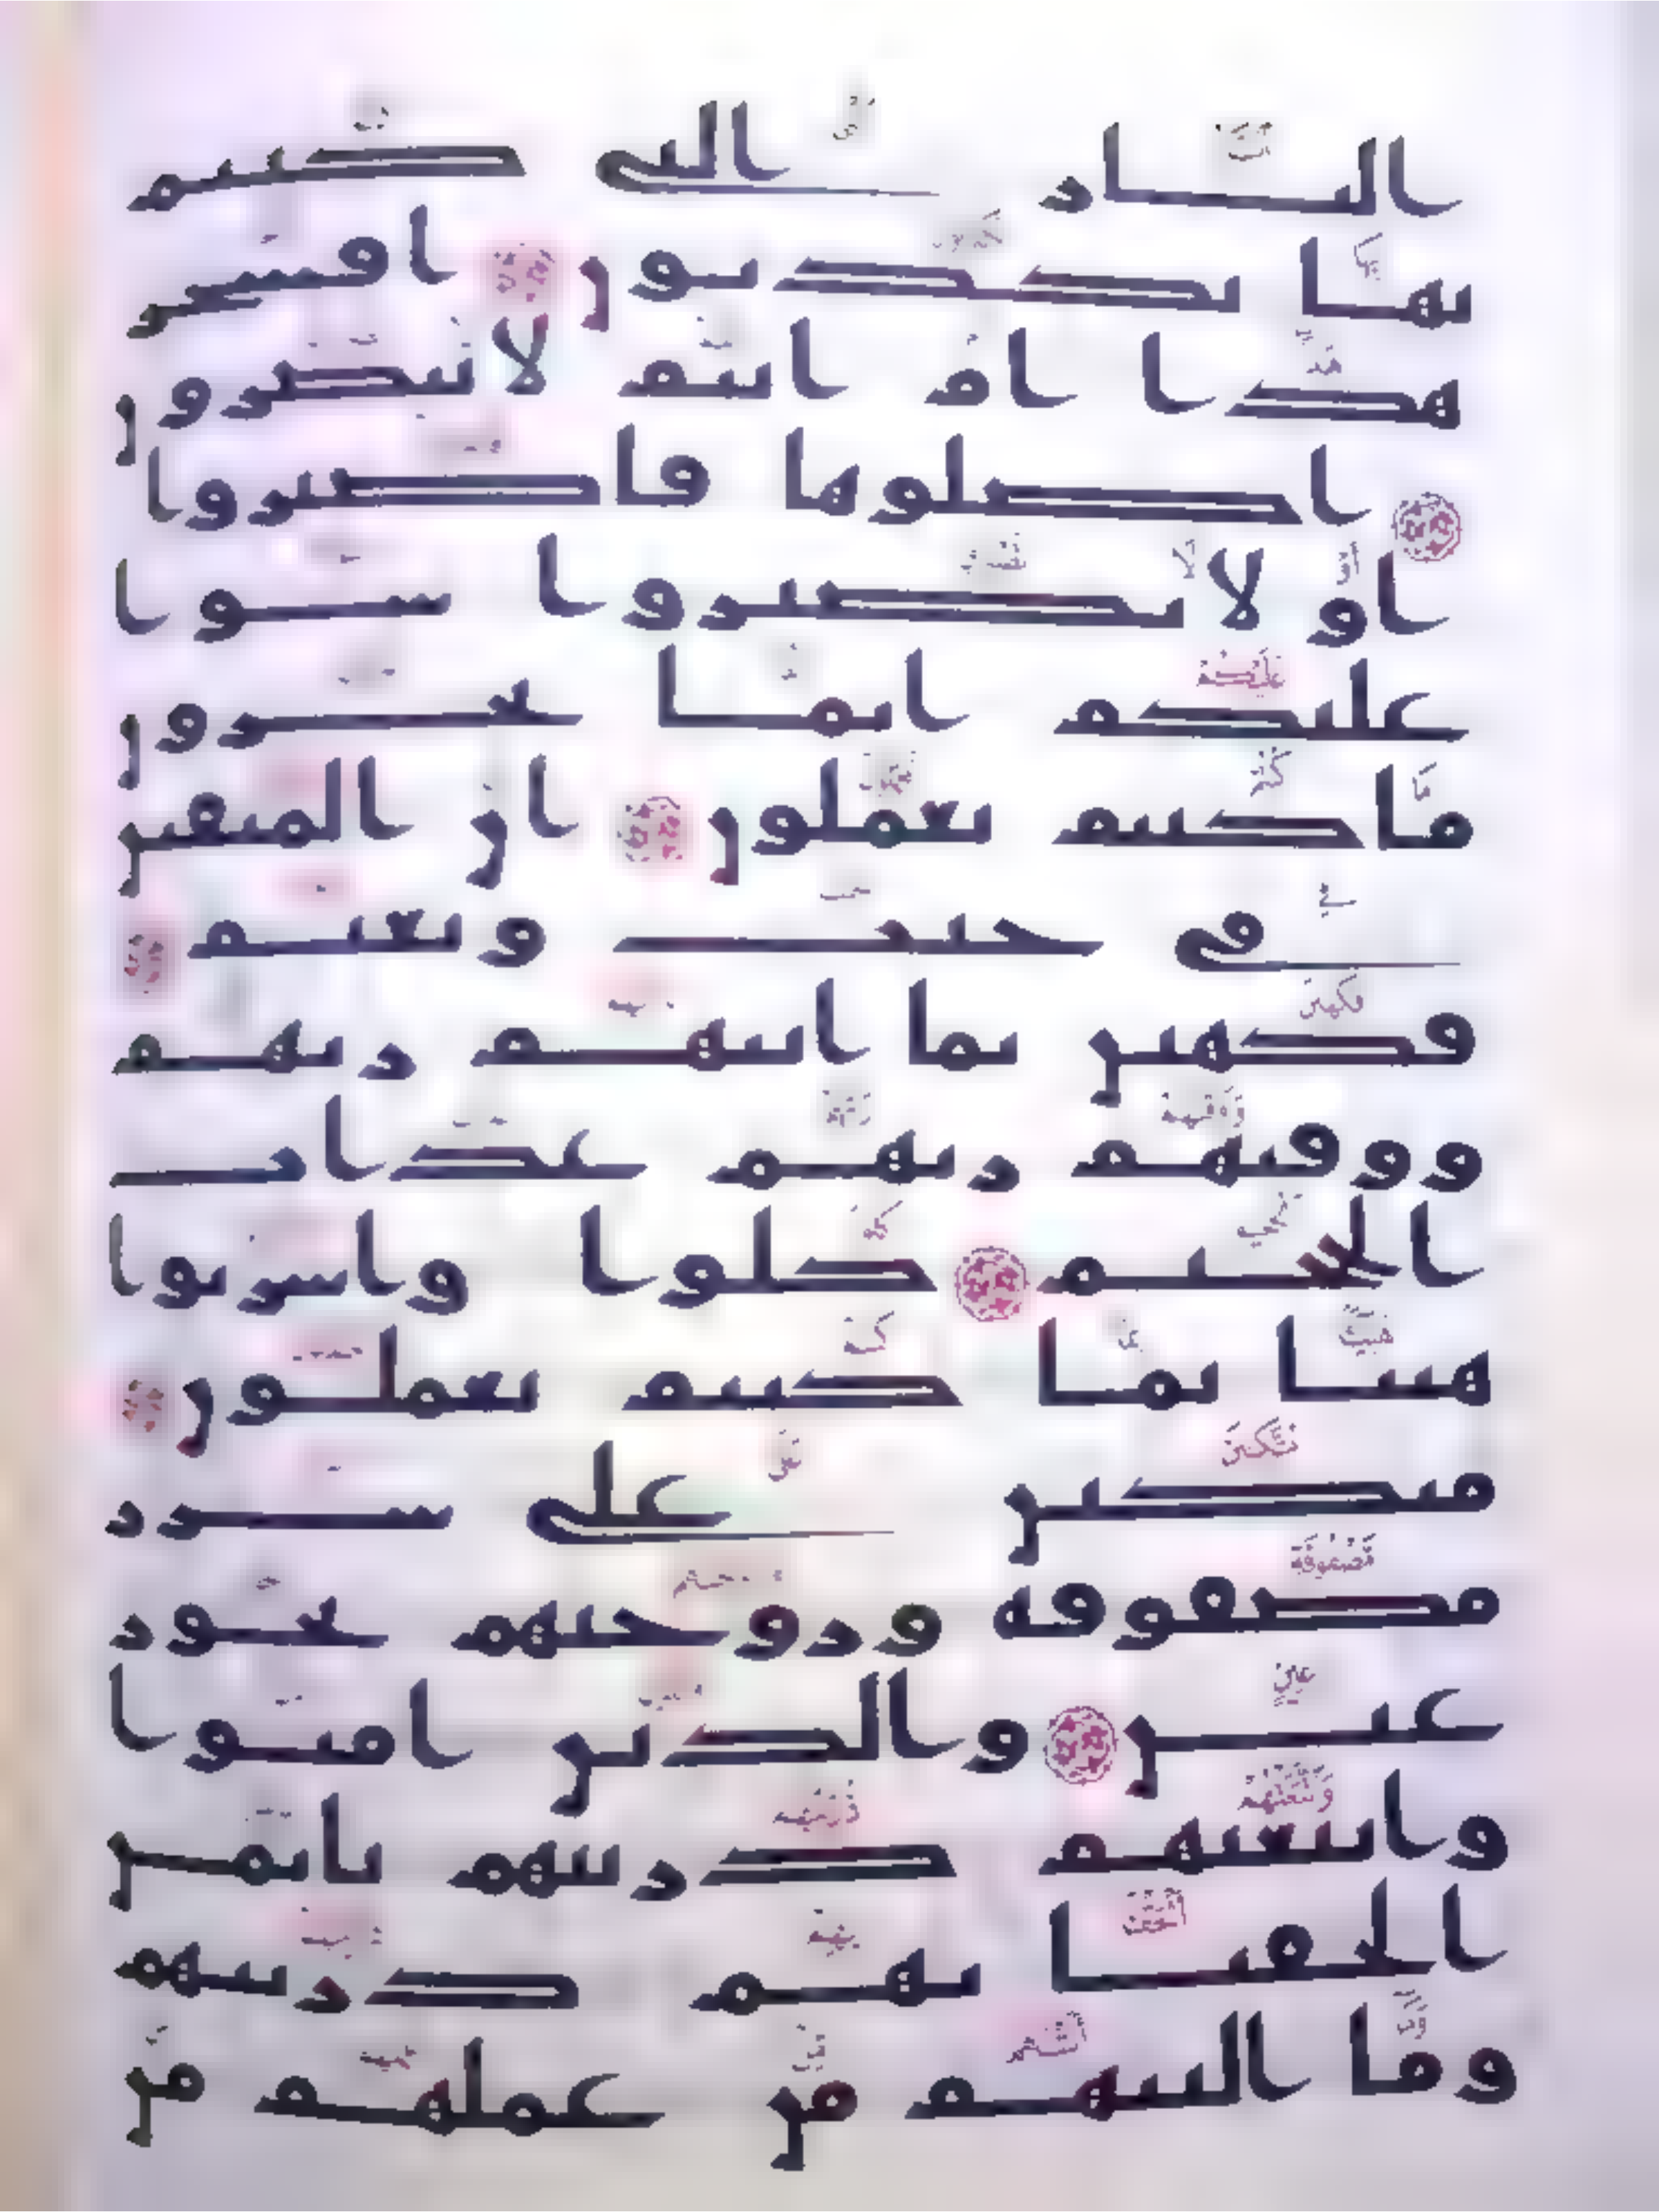 النار التى كنتم
بها تكذبون افسحر
هذا ام انتم لا تبصرون
اصلوها فاصبروا
او لا تصبروا سوا
عليكم انما تجزون
ما كنتم تعملون ان المتقين
فى جنت ونعيم
فكهين بما اتيهم ربهم
ووقيهم ربهم عذاب
الجحيم كلوا واشربوا
هنيا بما كنتم تعملون
متكين على سرر
مصفوفة وزوجنهم بحور
عين والذين امنوا
واتبعتهم ذريتهم بايمن
الحقنا بهم ذريتهم
وما التنهم من عملهم من